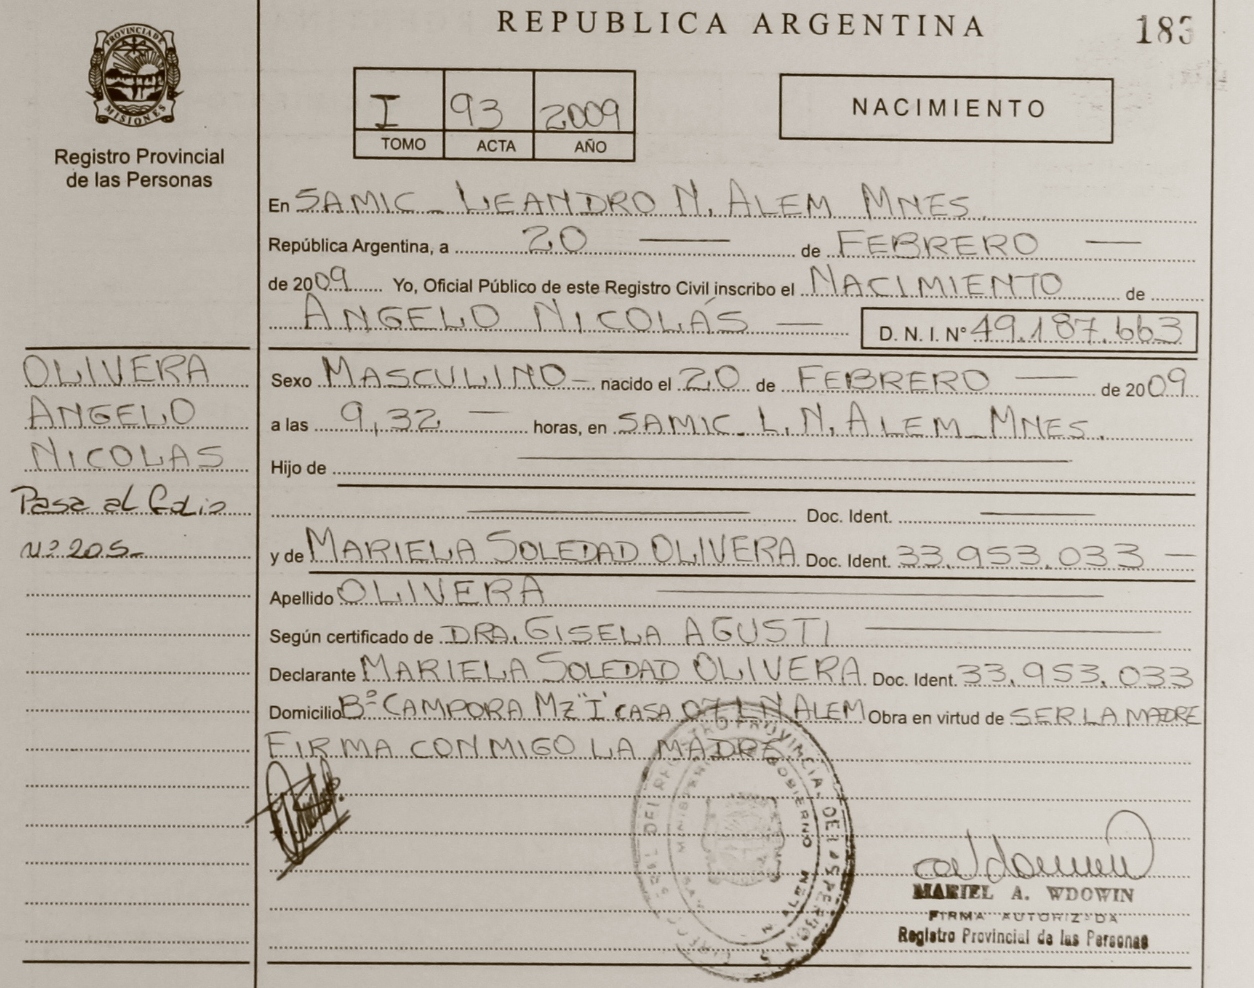 REPUBLICA ARGENTINA
183
PROVINCIA DE MISIONES
Registro Provincial
de las Personas
I 93 2009
TOMO ACTA AÑO
NACIMIENTO
En SAMIC - LEANDRO N. ALEM MNES.
República Argentina, a 20 — de FEBRERO —
de 2009 Yo, Oficial Público de este Registro Civil inscribo el NACIMIENTO de
ANGELO NICOLÁS — D. N. I. Nº 49.187.663
OLIVERA
ANGELO
NICOLAS
Pasa al folio
Nº 205-
Sexo MASCULINO - nacido el 20 de FEBRERO — de 2009
a las 9,32 — horas, en SAMIC - L. N. ALEM - MNES.
Hijo de —
— Doc. Ident. —
y de MARIELA SOLEDAD OLIVERA Doc. Ident. 33.953.033 —
Apellido OLIVERA —
Según certificado de DRA. GISELA AGUSTI —
Declarante MARIELA SOLEDAD OLIVERA Doc. Ident. 33.953.033
Domicilio Bº CAMPORA MZ "I" CASA 07 L N ALEM Obra en virtud de SER LA MADRE
FIRMA CONMIGO LA MADRE
MARIEL A. WDOWIN
FIRMA AUTORIZADA
Registro Provincial de las Personas